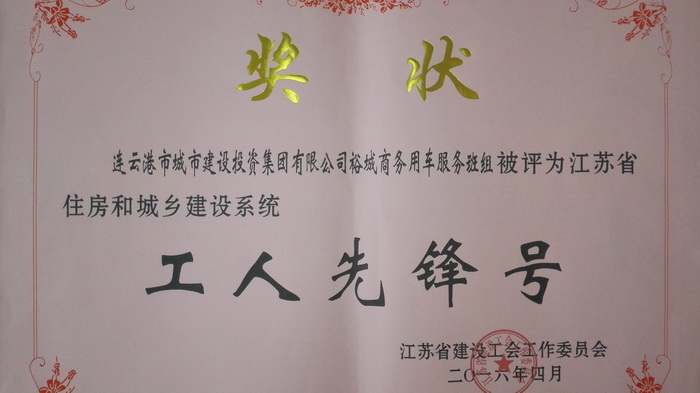 奖状
连云港市城市建设投资集团有限公司裕城商务用车服务班组被评为江苏省
住房和城乡建设系统
工人先锋号
江苏省建设工会工作委员会
二〇一六年四月